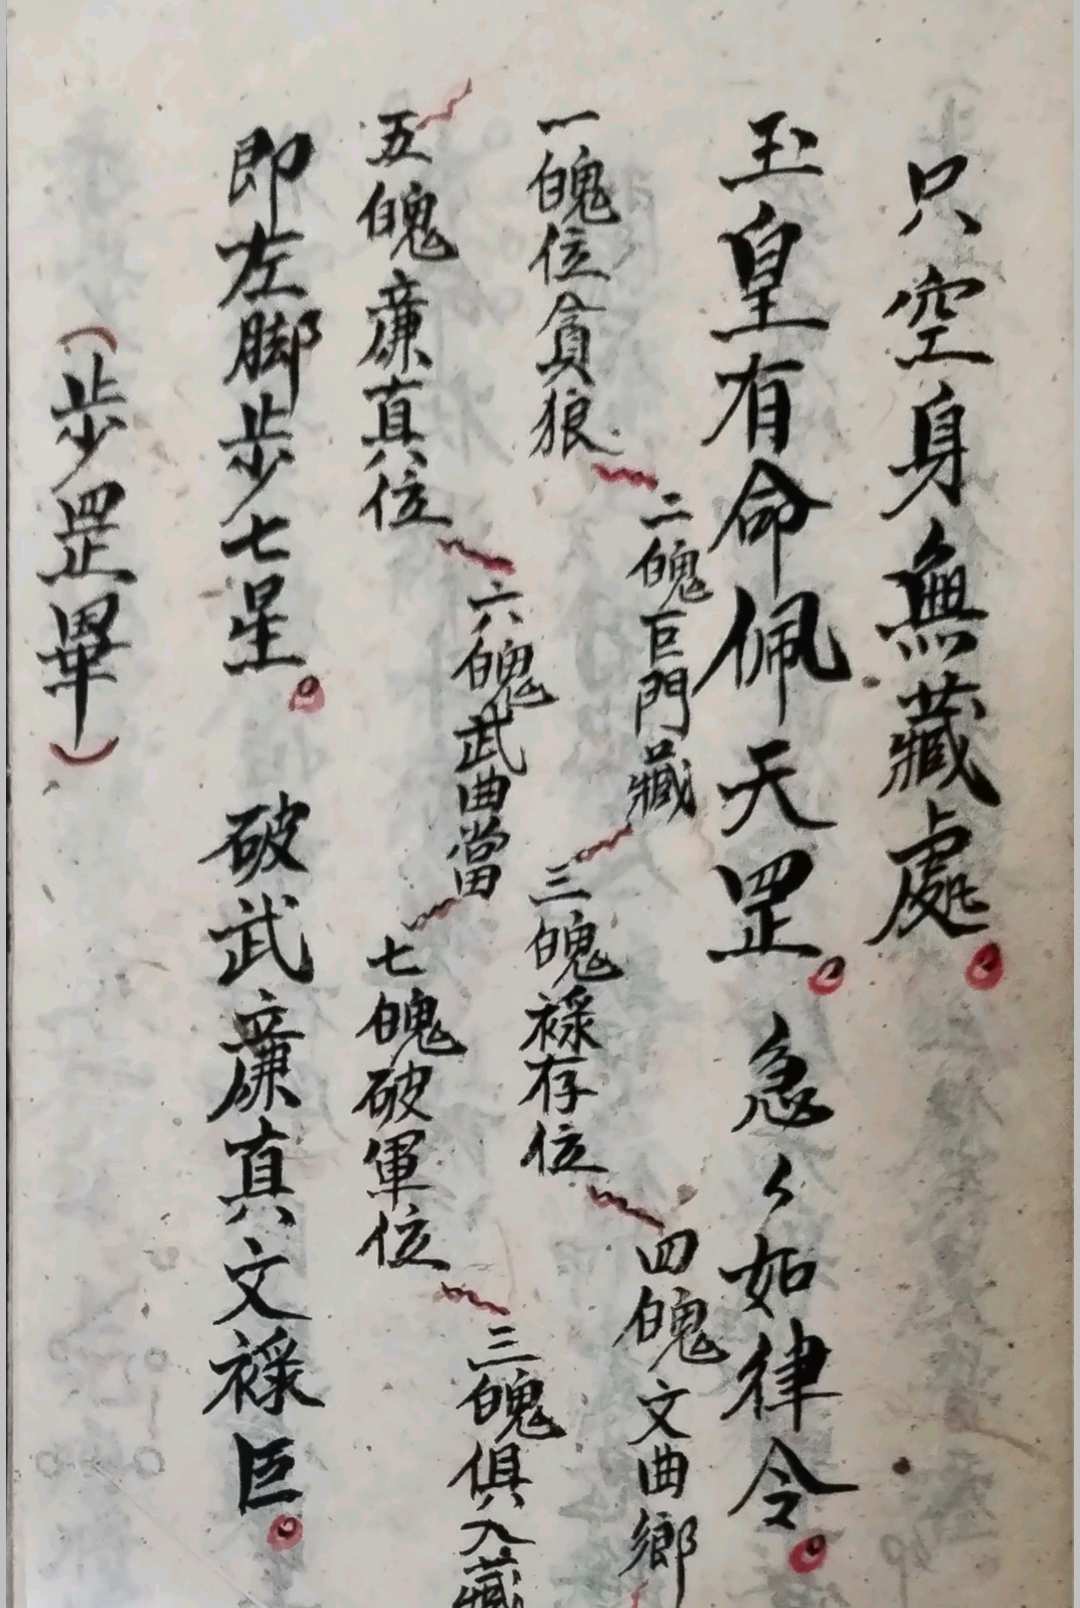 只空身無藏處
玉皇有命佩天罡 急々如律令
一魄位貪狼
二魄巨門藏
三魄祿存位
四魄文曲鄉
五魄廉真位
六魄武曲當
七魄破軍位
三魄俱入藏
即左脚步七星 破武廉真文祿巨
(步罡畢)